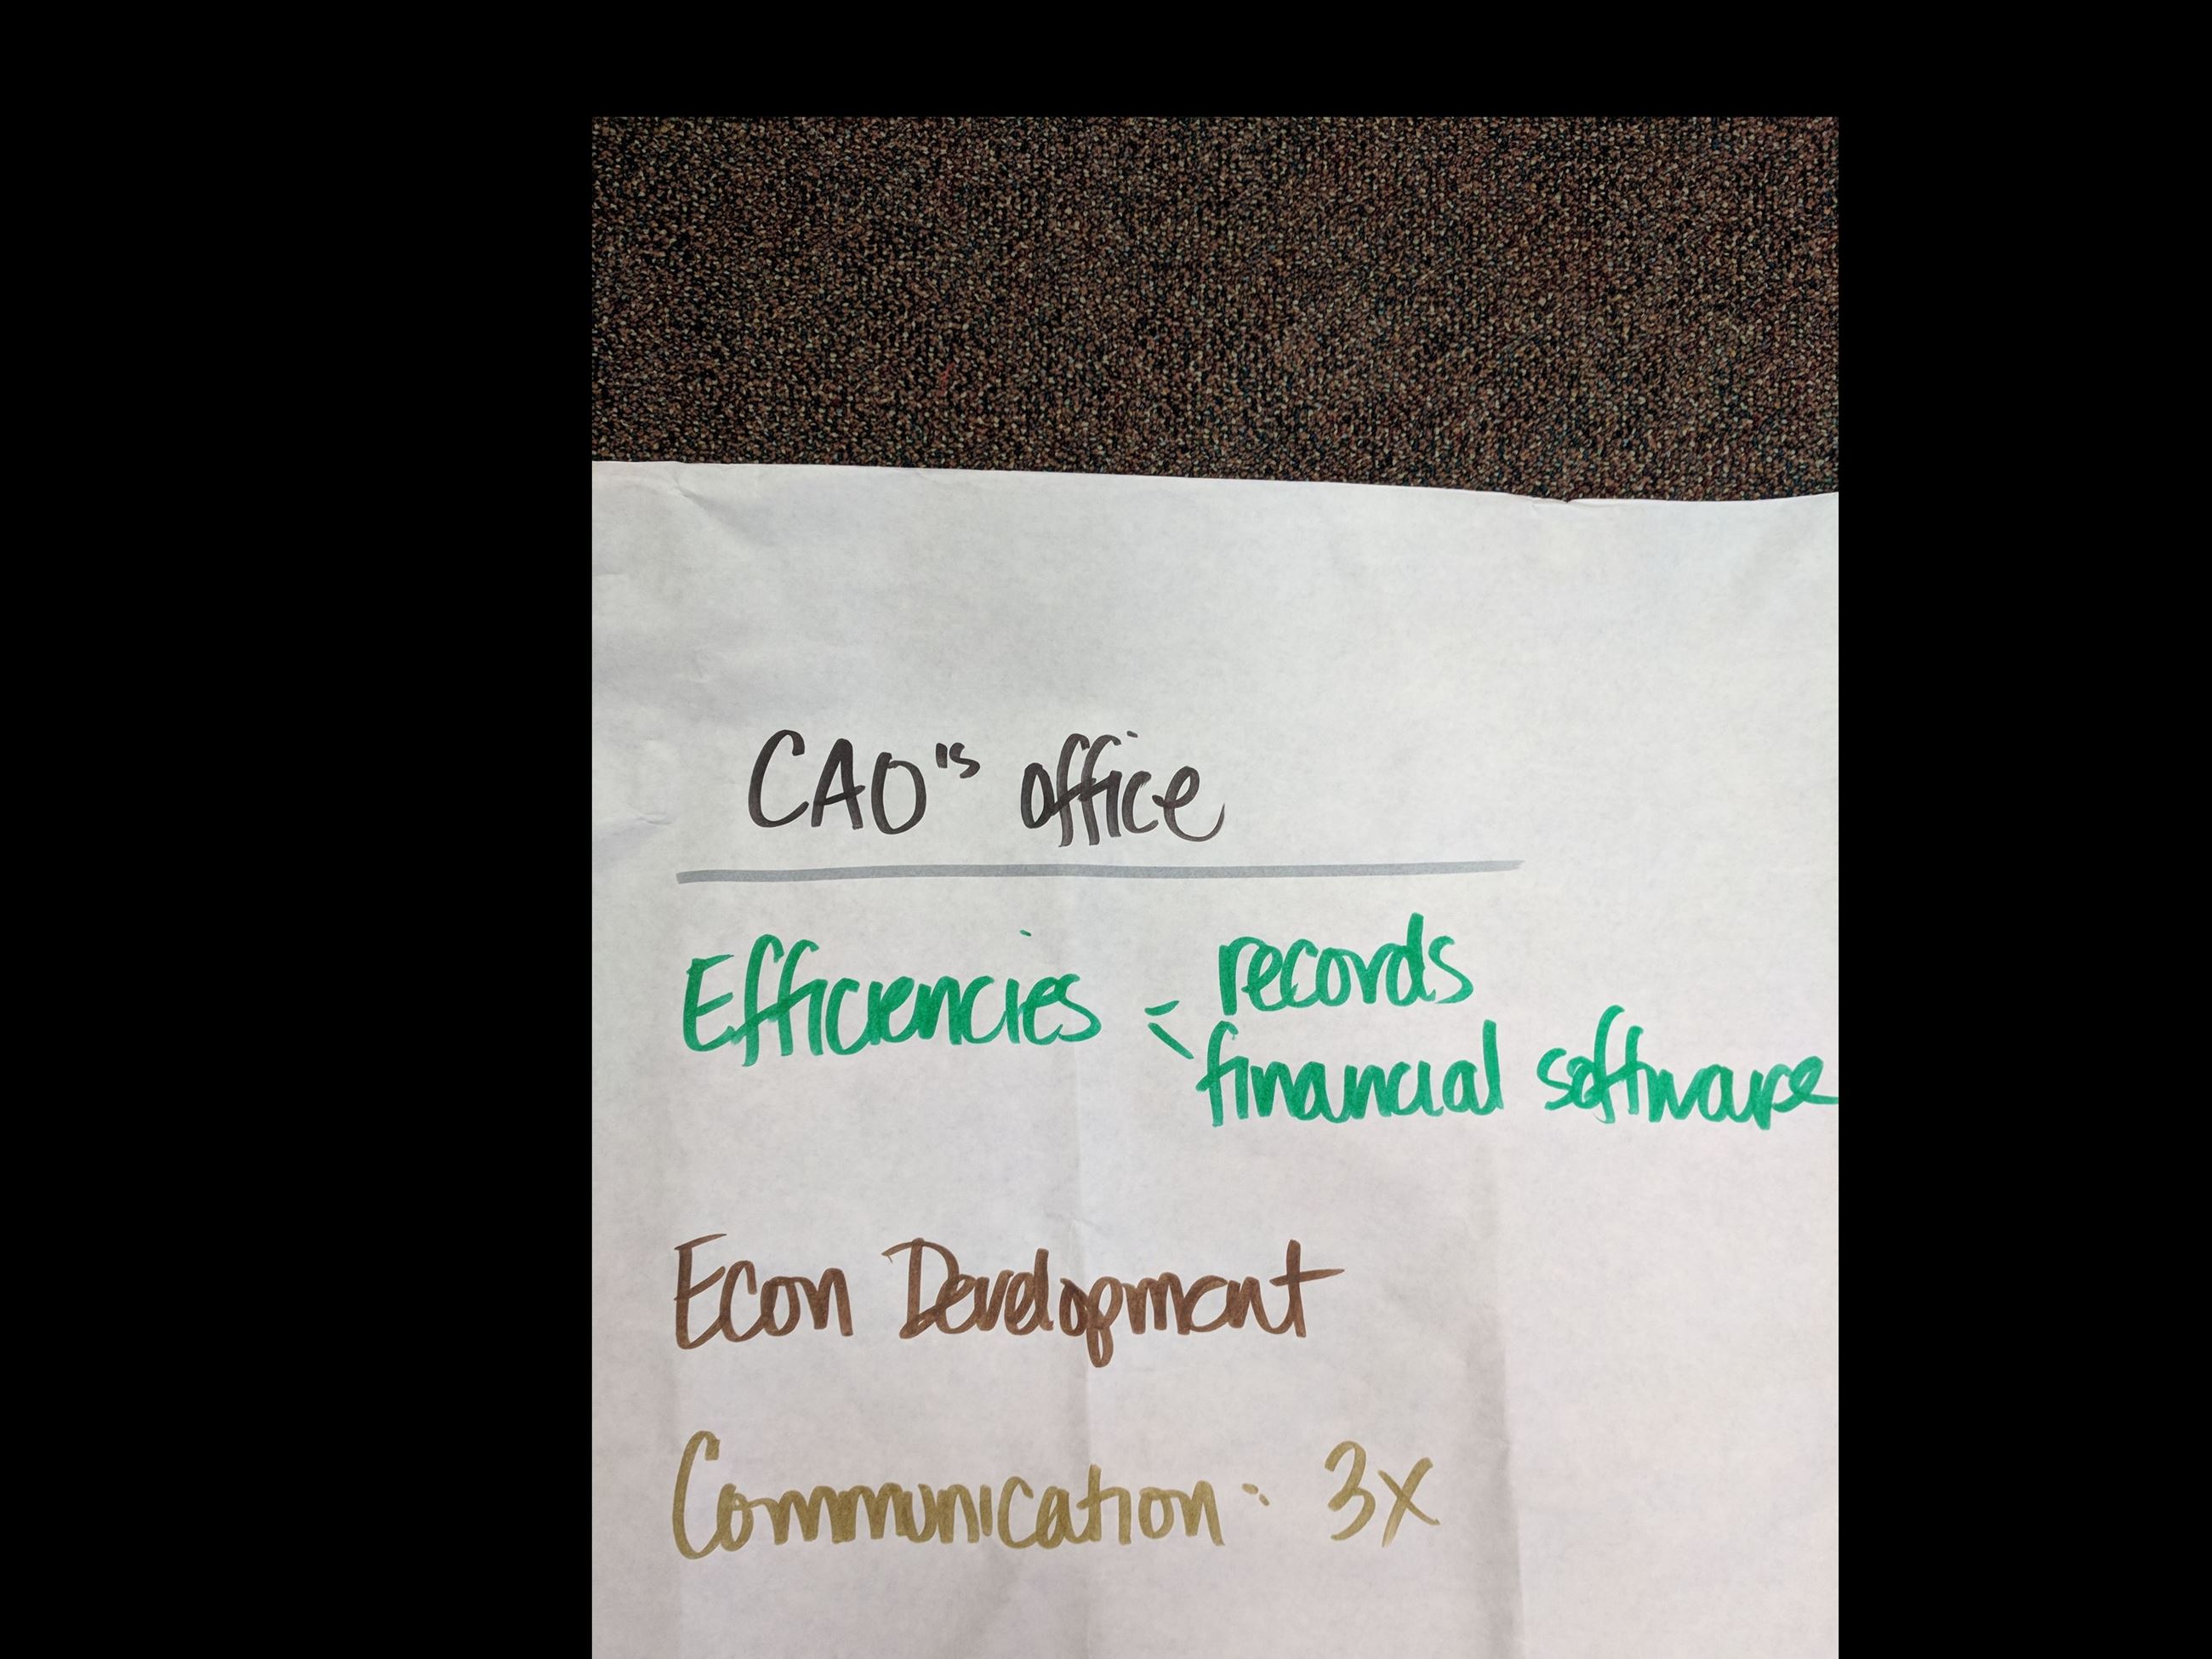 CAO's office
Efficiencies - records
financial software
Econ Development
Communication: 3x